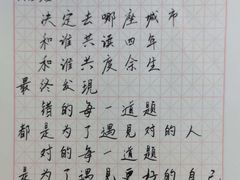 决定去哪座城市
和谁共读四年
和谁共度余生
最终发现
错的每一道题
都是为了遇见对的人
对的每一道题
是为了遇见更好的自己